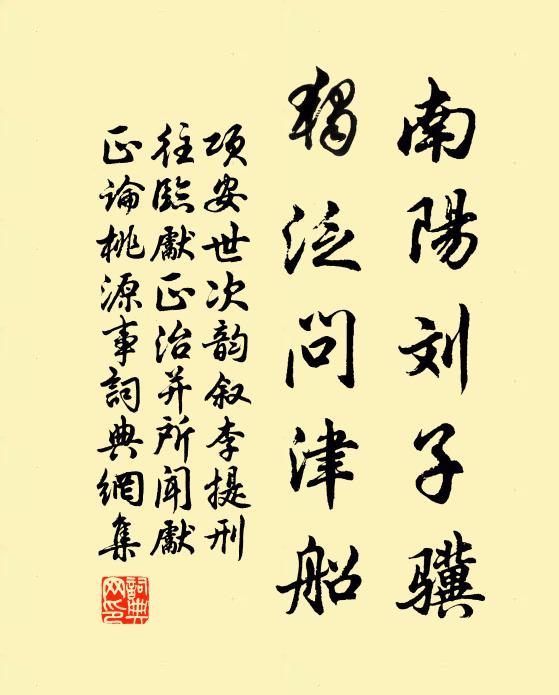 南陽刘子驥
獨泛問津船
项安世次韵叙李提刑
往臨獻正治并所聞獻
正論桃源事詞典網集
詞典
网印